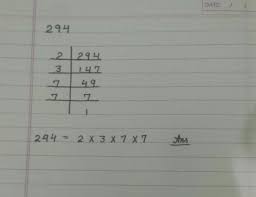 DATE
294
2 | 294
3 | 147
7 | 49
7 | 7
| 1
294 = 2 x 3 x 7 x 7 Ans